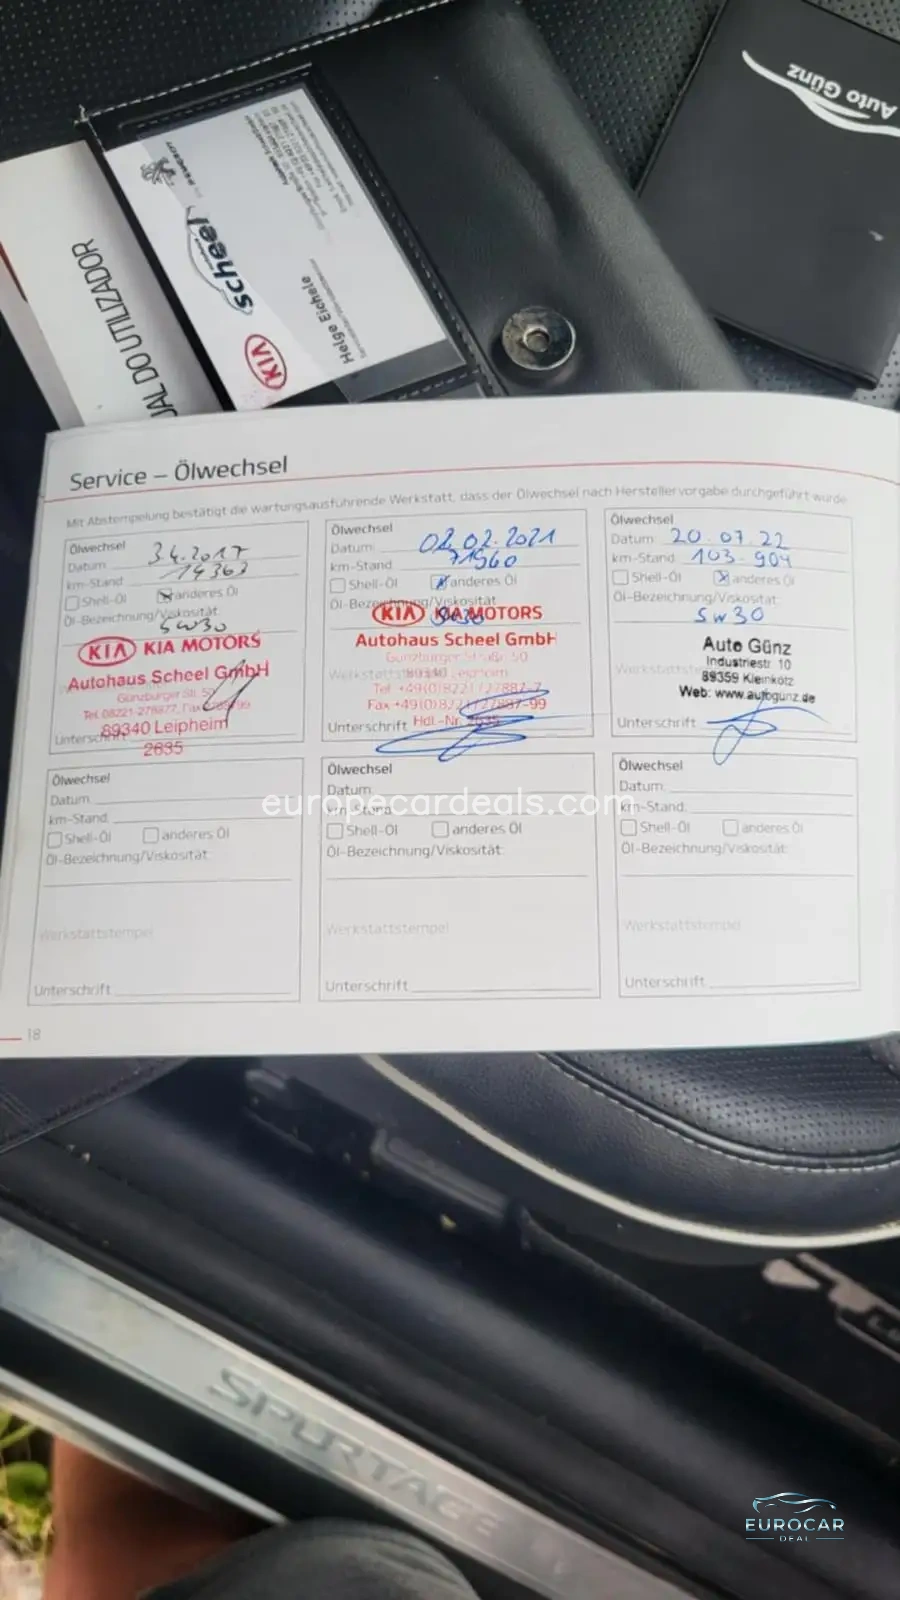 Auto Günz
PEUGEOT
scheel
KIA
Helge Eichele
UAL DO UTILIZADOR
Service – Ölwechsel
Mit Abstempelung bestätigt die wartungsausführende Werkstatt, dass der Ölwechsel nach Herstellervorgabe durchgeführt wurde
Ölwechsel
Datum: 3.4.2017
km-Stand 14363
Shell-Öl anderes Öl
Öl-Bezeichnung/Viskosität:
5W30
KIA KIA MOTORS
Autohaus Scheel GmbH
Günzburger Str. 50
89340 Leipheim
Unterschrift
2635
Ölwechsel
Datum: 02.02.2021
km-Stand: 71960
Shell-Öl anderes Öl
Öl-Bezeichnung/Viskosität
KIA KIA MOTORS
Autohaus Scheel GmbH
Günzburger Straße 50
89340 Leipheim
Tel. +49(0)8221/27887-7
Fax +49(0)8221/27887-99
Unterschrift Hdl-Nr. 2635
Ölwechsel
Datum: 20.07.22
km-Stand: 103.904
Shell-Öl anderes Öl
Öl-Bezeichnung/Viskosität:
5W30
Auto Günz
Industriestr. 10
89359 Kleinkötz
Web: www.autogunz.de
Unterschrift
Ölwechsel
Datum:
km-Stand:
Shell-Öl anderes Öl
Öl-Bezeichnung/Viskosität:
Werkstattstempel
Unterschrift
Ölwechsel
Datum:
km-Stand:
Shell-Öl anderes Öl
Öl-Bezeichnung/Viskosität:
Werkstattstempel
Unterschrift
Ölwechsel
Datum:
km-Stand:
Shell-Öl anderes Öl
Öl-Bezeichnung/Viskosität:
Werkstattstempel
Unterschrift
europecardeals.com
18
SPORTAGE
EUROCAR
DEAL